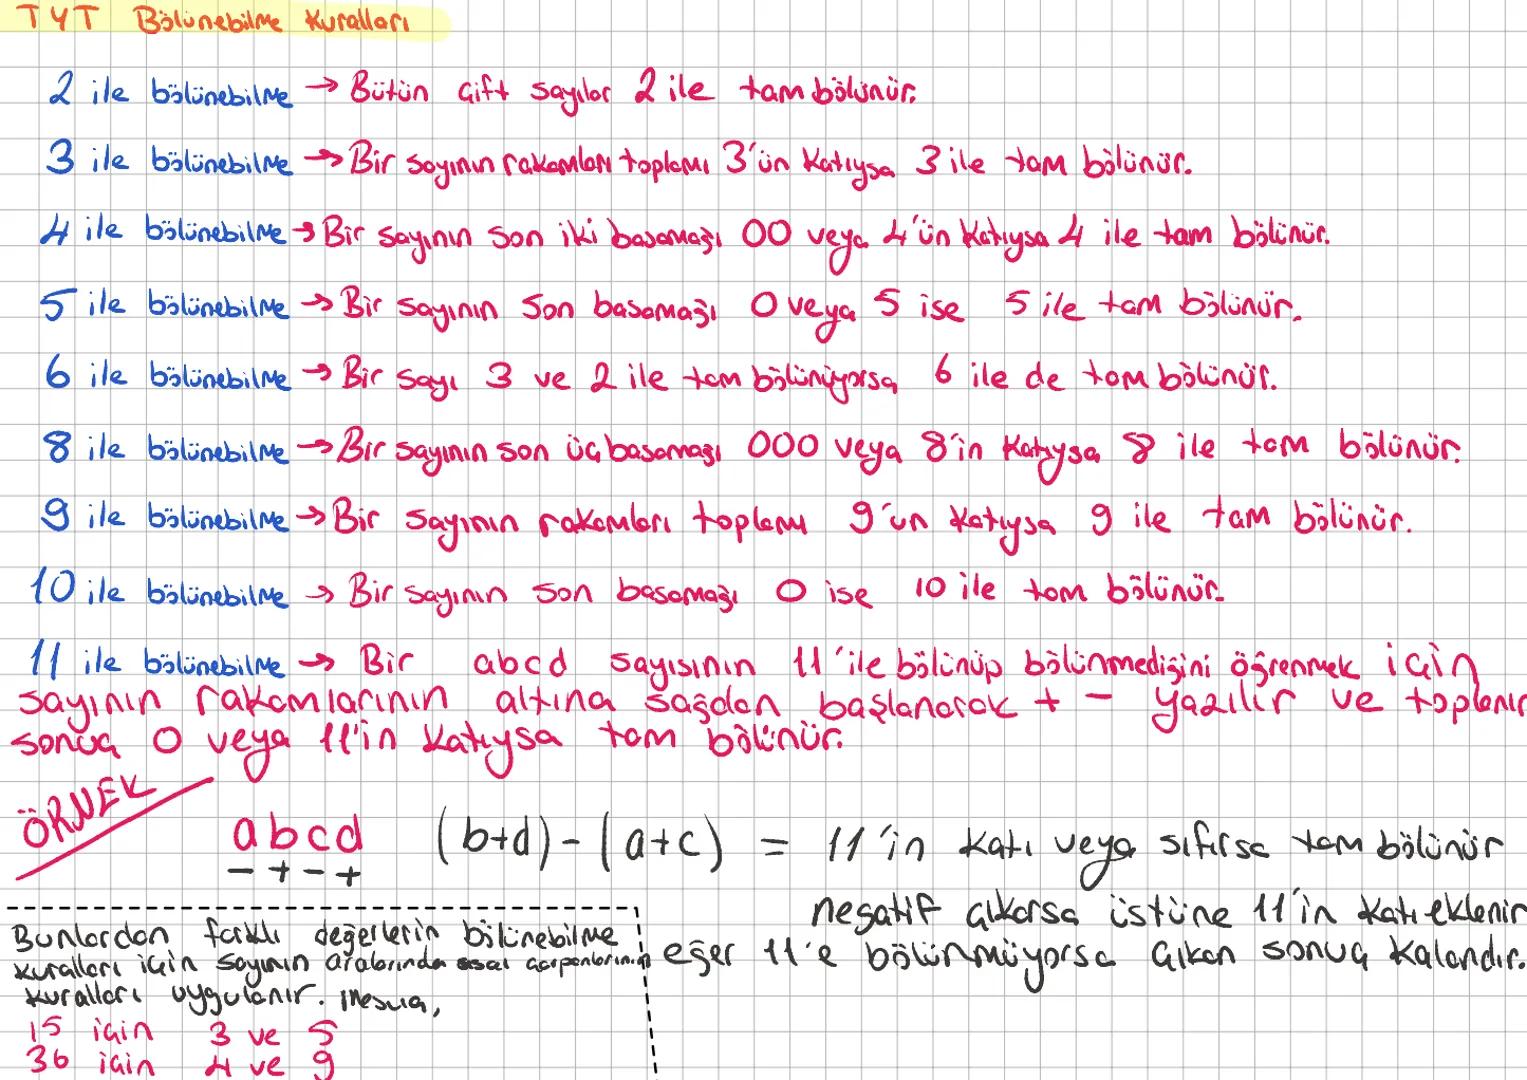 TYT Bölünebilme Kuralları
2 ile bölünebilme → Bütün çift sayılar 2 ile tam bölünür.
3 ile bölünebilme → Bir sayının rakamları toplamı 3'ün katıysa 3 ile tam bölünür.
4 ile bölünebilme → Bir sayının son iki basamağı 00 veya 4'ün katıysa 4 ile tam bölünür.
5 ile bölünebilme → Bir sayının son basamağı 0 veya 5 ise 5 ile tam bölünür.
6 ile bölünebilme → Bir sayı 3 ve 2 ile tam bölünüyorsa 6 ile de tam bölünür.
8 ile bölünebilme → Bir sayının son üç basamağı 000 veya 8'in katıysa 8 ile tam bölünür.
9 ile bölünebilme → Bir sayının rakamları toplamı 9'un katıysa 9 ile tam bölünür.
10 ile bölünebilme → Bir sayının son basamağı 0 ise 10 ile tam bölünür.
11 ile bölünebilme → Bir abcd sayısının 11'ile bölünüp bölünmediğini öğrenmek için
sayının rakamlarının altına sağdan başlanarak + - yazılır ve toplanır
sonuç 0 veya 11'in katıysa tam bölünür.
ÖRNEK
abcd (b+d)-(a+c) = 11'in katı veya sıfırsa tam bölünür
- + - +
negatif çıkarsa üstüne 11'in katı eklenir
eğer 11'e bölünmüyorsa çıkan sonuç kalandır.
Bunlardan farklı değerlerin bölünebilme
kuralları için sayının aralarında asal çarpanlarının
kuralları uygulanır. mesela,
15 için 3 ve 5
36 için 4 ve 9